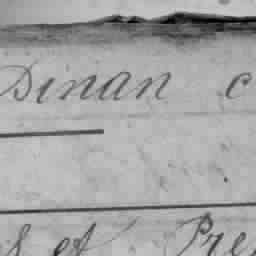 Dinan c
s et Pre